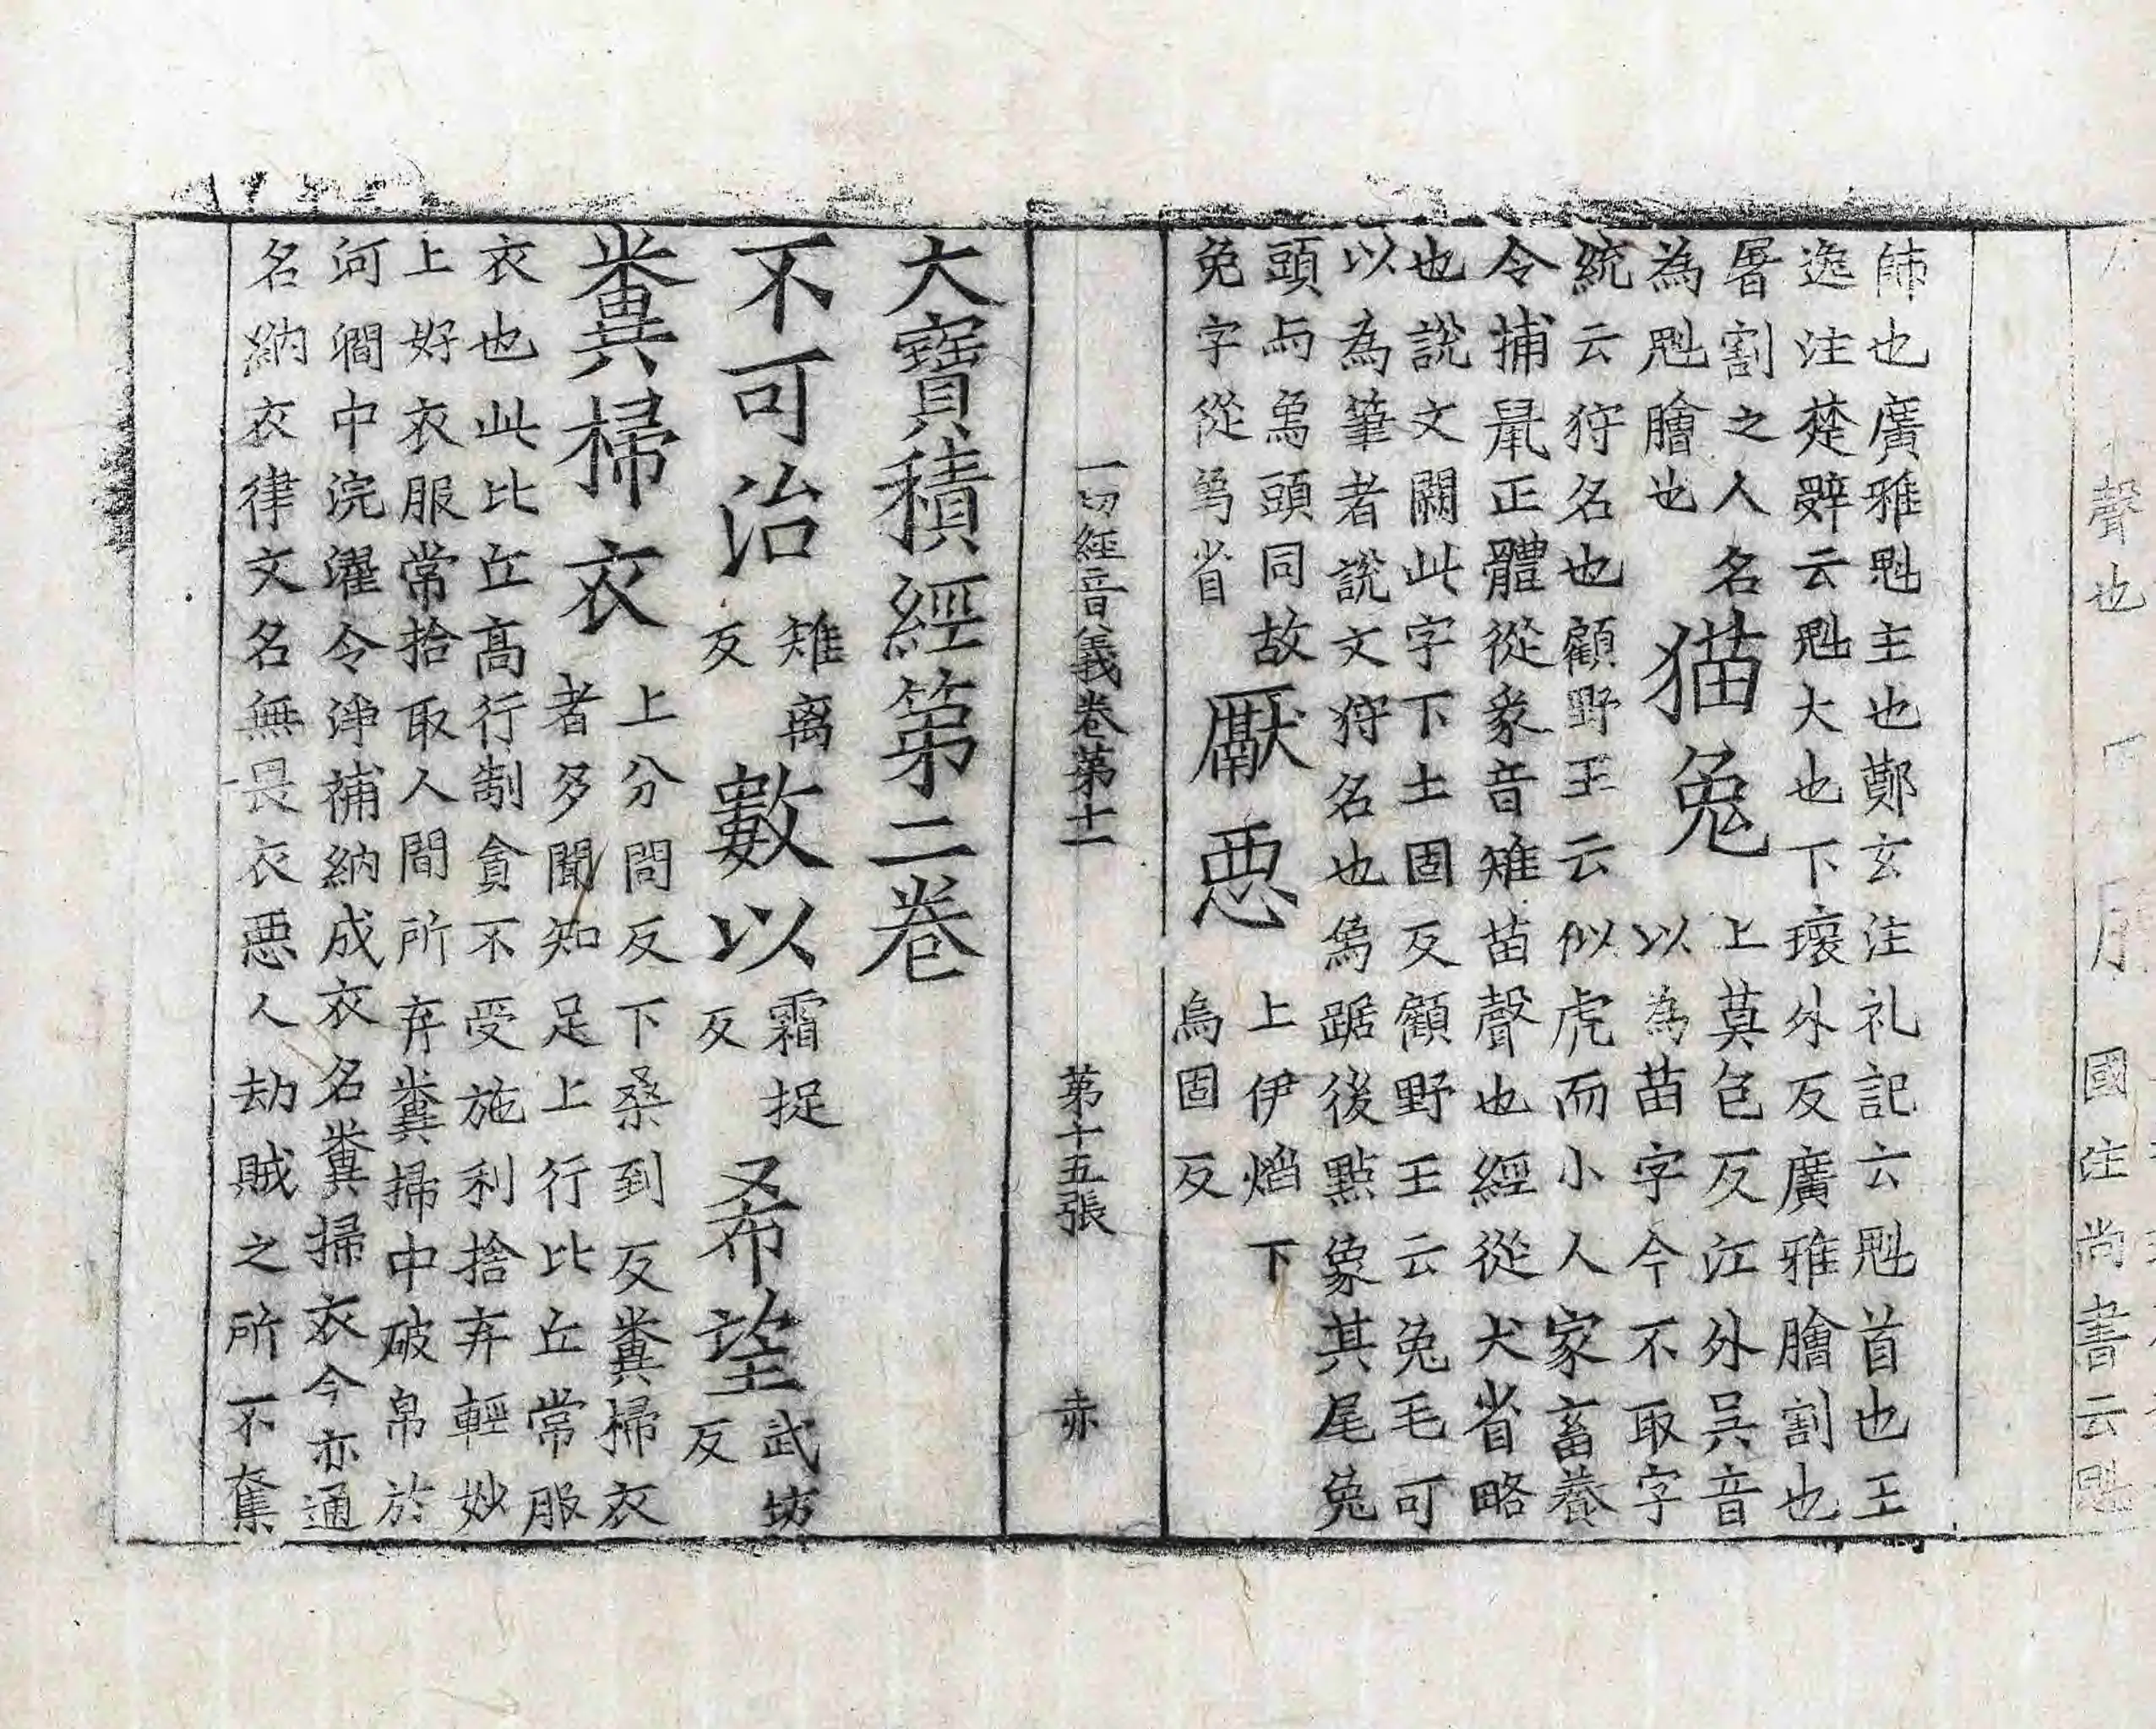 聲也
國注尚書云魁
師也廣雅魁主也鄭玄注礼記云魁首也王
逸注楚辭云魁大也下瓌外反廣雅膾割也
屠割之人名
為魁膾也
猫兔
上莫包反江外吳音
以為苗字今不取字
統云狩名也顧野王云似虎而小人家畜養
令捕鼠正體從豸音雉苗聲也經從犬省略
也說文闕此字下土固反顧野王云兔毛可
以為筆者說文狩名也象踞後點象其尾兔
頭与㲋頭同故
兔字從㲋省
厭惡
上伊焰下
烏固反
一切經音義卷第十一 第十五張 赤
大寶積經第二卷
不可治 雉离反 數以 霜捉反 希望 武坊反
糞掃衣
上分問反下桑到反糞掃衣
者多聞知足上行比丘常服
衣也此比丘高行制貪不受施利捨弃輕妙
上好衣服常拾取人間所弃糞掃中破帛於
河澗中浣濯令淨補納成衣名糞掃衣今亦通
名納衣律文名無畏衣惡人劫賊之所不奪